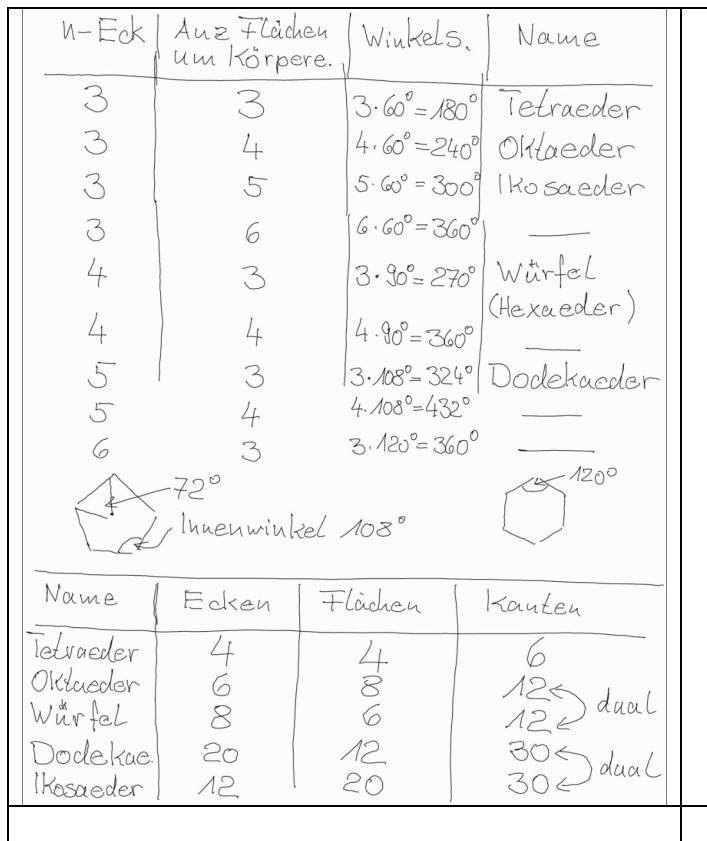 n-Eck Anz Flächen um Körpere. Winkels. Name
3 3 3·60°=180° Tetraeder
3 4 4·60°=240° Oktaeder
3 5 5·60°=300° Ikosaeder
3 6 6·60°=360° —
4 3 3·90°=270° Würfel (Hexaeder)
4 4 4·90°=360° —
5 3 3·108°=324° Dodekaeder
5 4 4·108°=432° —
6 3 3·120°=360° —
72° 120°
Innenwinkel 108°
Name Ecken Flächen Kanten
Tetraeder 4 4 6
Oktaeder 6 8 12
dual
Würfel 8 6 12
Dodekae. 20 12 30
dual
Ikosaeder 12 20 30